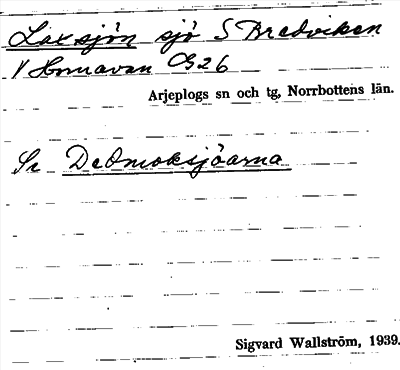 Laxsjön sjö S Bredviken
V Hornavan G26
Arjeplogs sn och tg, Norrbottens län.
Se Dedmoksjöarna
Sigvard Wallström, 1939.